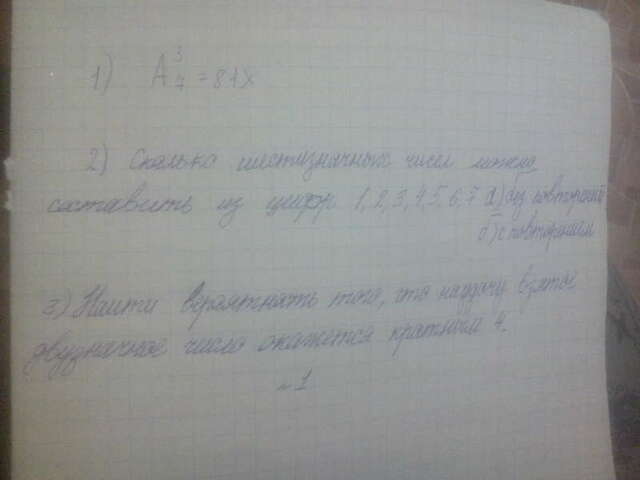 1) A³₇ = 8+x
2) Сколько шестизначных чисел можно
составить из цифр 1, 2, 3, 4, 5, 6, 7 а) без повторений
б) с повторением
3) Найти вероятнять того, что наудачу взятое
двузначное число окажется кратным 4.
~1